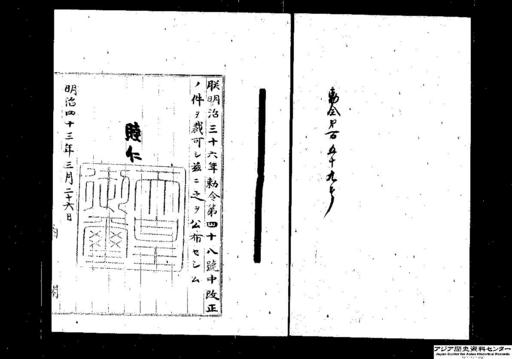 勅令第百五十九号
朕明治三十六年勅令第四十八號中改正
ノ件ヲ裁可シ茲ニ之ヲ公布セシム
睦仁
天皇御璽
明治四十三年三月二十六日
内閣
アジア歴史資料センター
Japan Center for Asian Historical Records